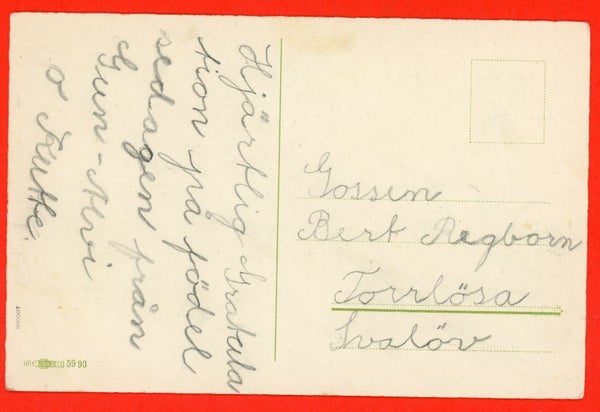 Hjärtlig Gratula
tion på födel
sedagen från
Gun-Alvi
o Rutte.
Gossen
Bert Regborn
Torrlösa
Svalöv
IMPORT
5993